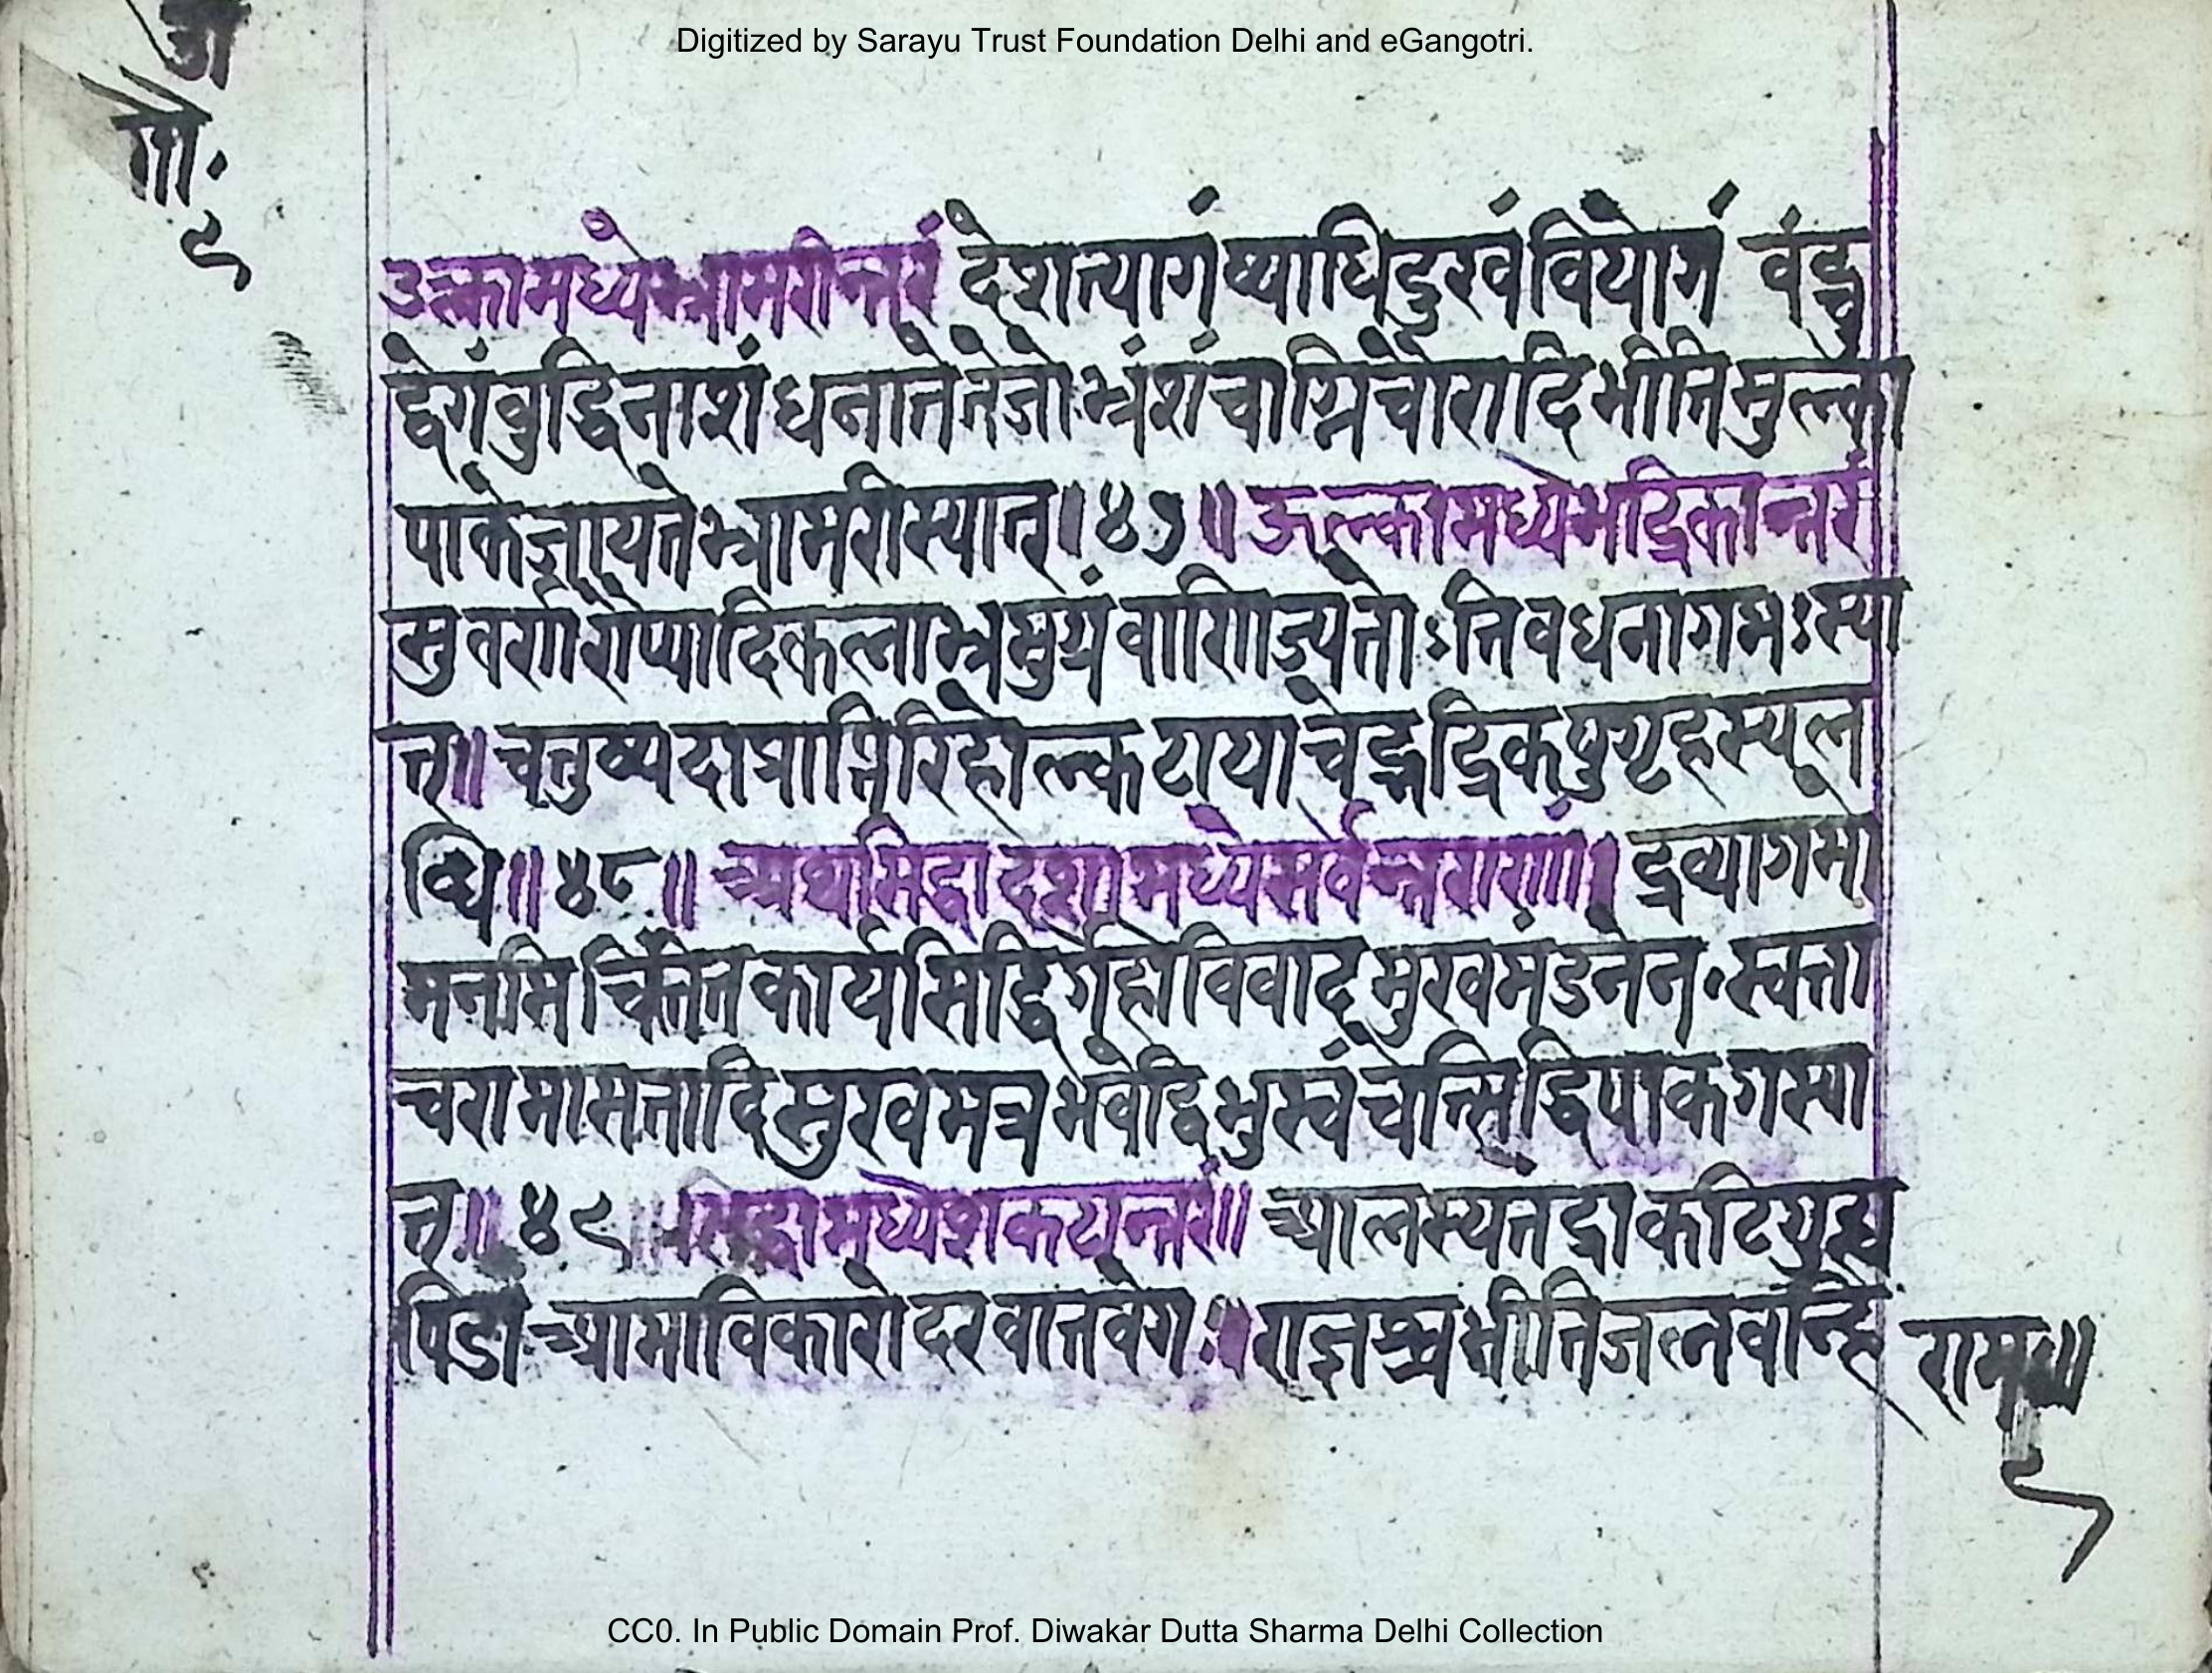 Digitized by Sarayu Trust Foundation Delhi and eGangotri.
गो.
९
उल्कामध्येभ्रामरीन्तरं देशत्यागंव्याधिदुखंवियोगं वंद्व
द्वेगंवुद्धिनाशंधनातेतेजोभ्रंशंचाग्निचोरादिभीतिमुल्का
पाकेजायतेभ्रामरीस्यात्॥४७॥ऊल्कामध्येभद्रिकान्तरं
सुवर्णरोप्यादिकलाभ्रमुग्रंवाणिज्यतोऽतिवधनागमःस्या
त्॥चतुष्पदाप्राप्तिरिहोल्कटायाचेद्भद्रिकपुगृहस्यल
ब्धि॥४८॥ अथसिद्धादशामध्येसर्वेन्तराणां॥द्रव्यागमो
मनसिचिन्तितकार्यसिद्धिर्गृहोविवादमुखमंडनेन॰स्वक्ता
चरामासतादिसुखमत्रभवेद्विभुस्वंचेत्सिद्धिपाकगस्या
त्॥४९॥सिद्धामध्येशकटान्तरं॥ आलस्यतद्राकटिगुह्य
पिडा आमाविकारोदरवातवेगः॥राज्ञश्चभीतिजलवन्हि
राम॥
९
CC0. In Public Domain Prof. Diwakar Dutta Sharma Delhi Collection